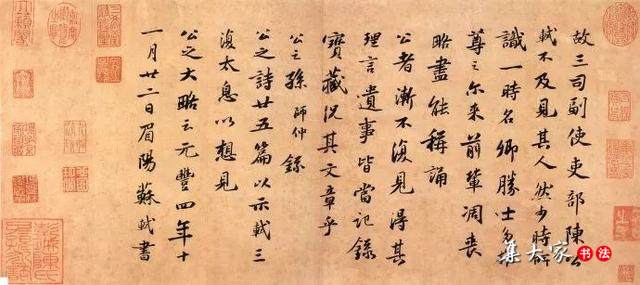 故三司副使吏部陳公
軾不及見其人然少時所
識一時名卿勝士多推
尊之尔来前輩凋喪
略盡能稱誦
公者漸不復見得其
理言遺事皆當記錄
寶藏況其文章乎
公之孫師仲錄
公之詩廿五篇以示軾三
復太息以想見
公之大略云元豐四年十
一月廿二日眉陽蘇軾書
集大家
书法